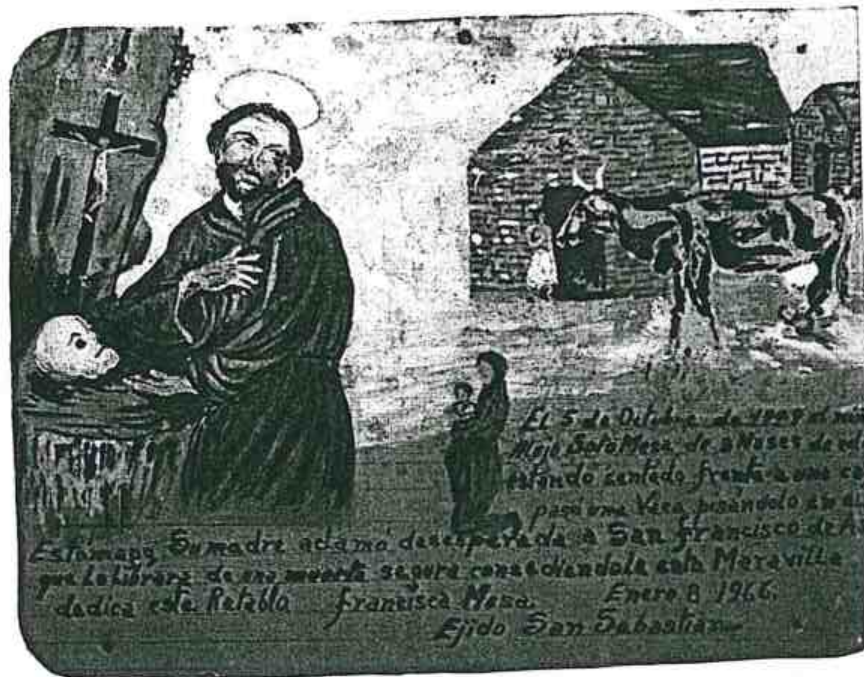 El 5 de Octubre de
Soto Mesa, de Meses de
estando sentado frente a una
paso una Vaca pisandolo en
Estómago, Su madre aclamó desesperada a San francisco de
que lo librara de una muerte segura consediendole esta Maravilla
dedica este Retablo francisca Mesa. Enero 8 1966.
Ejido San Sabastian